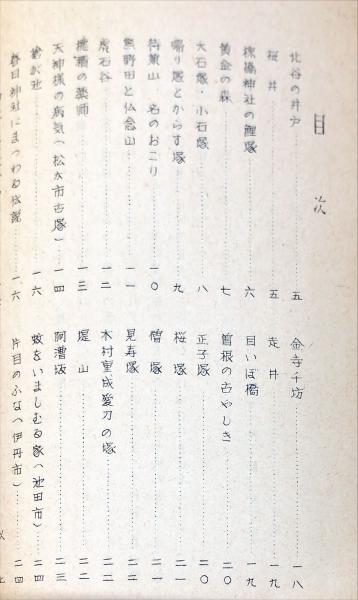 目次
北谷の井戸 五
桜井 五
椋橋神社の鯉塚 六
黄金の森 七
大石塚・小石塚 八
帰り塚とからす塚 九
待兼山 名のおこり 一〇
熊野田と仏念山 一一
虎石谷 一二
の薬師 一三
天神様の病気(松永市古塚) 一四
社 一六
春日神社にまつわる伝説 一六
金寺千坊 一八
走井 一九
目いぼ橋 一九
曽根の古やしき 二〇
正子塚 二〇
桜塚 二一
僧塚 二一
見寿塚 二二
木村重成愛刀の塚 二二
星山 二二
阿漕坂 二三
蚊をいましむる家(池田市) 二四
片目のふな(伊丹市) 二四
以上